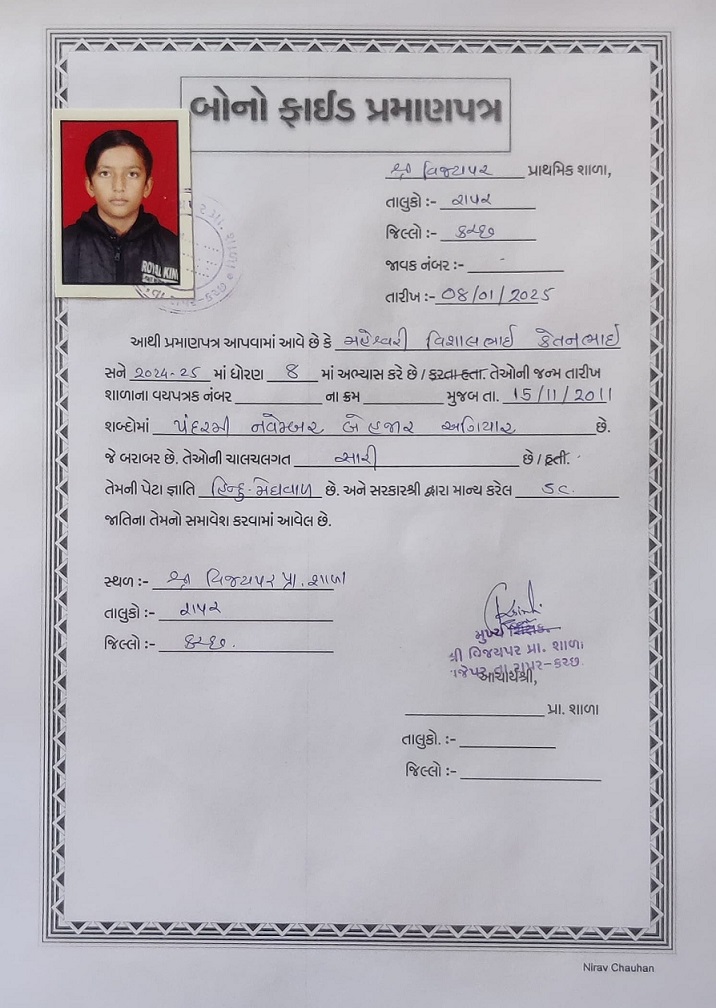 બોનો ફાઈડ પ્રમાણપત્ર
શ્રી વિજયપર પ્રાથમિક શાળા,
તાલુકો :- રાપર
જિલ્લો :- કચ્છ
જાવક નંબર :- -
તારીખ :- 08/01/2025
ROYAL KIN
આથી પ્રમાણપત્ર આપવામાં આવે છે કે મહેશ્વરી વિશાલભાઈ કેતનભાઈ
સને 2024-25 માં ધોરણ 8 માં અભ્યાસ કરે છે / કરતા હતા. તેઓની જન્મ તારીખ
શાળાના વયપત્રક નંબર ના ક્રમ મુજબ તા. 15/11/2011
શબ્દોમાં પંદરમી નવેમ્બર બે હજાર અગિયાર છે.
જે બરાબર છે. તેઓની ચાલચલગત સારી છે / હતી.
તેમની પેટા જ્ઞાતિ હિન્દુ-મેઘવાળ છે. અને સરકારશ્રી દ્વારા માન્ય કરેલ SC.
જાતિના તેમનો સમાવેશ કરવામાં આવેલ છે.
સ્થળ :- શ્રી વિજયપર પ્રા. શાળા
તાલુકો :- રાપર
જિલ્લો :- કચ્છ.
મુખ્ય શિક્ષક
શ્રી વિજયપર પ્રા. શાળા
તા. રાપર-કચ્છ
આચાર્યશ્રી,
પ્રા. શાળા
તાલુકો. :-
જિલ્લો :-
Nirav Chauhan